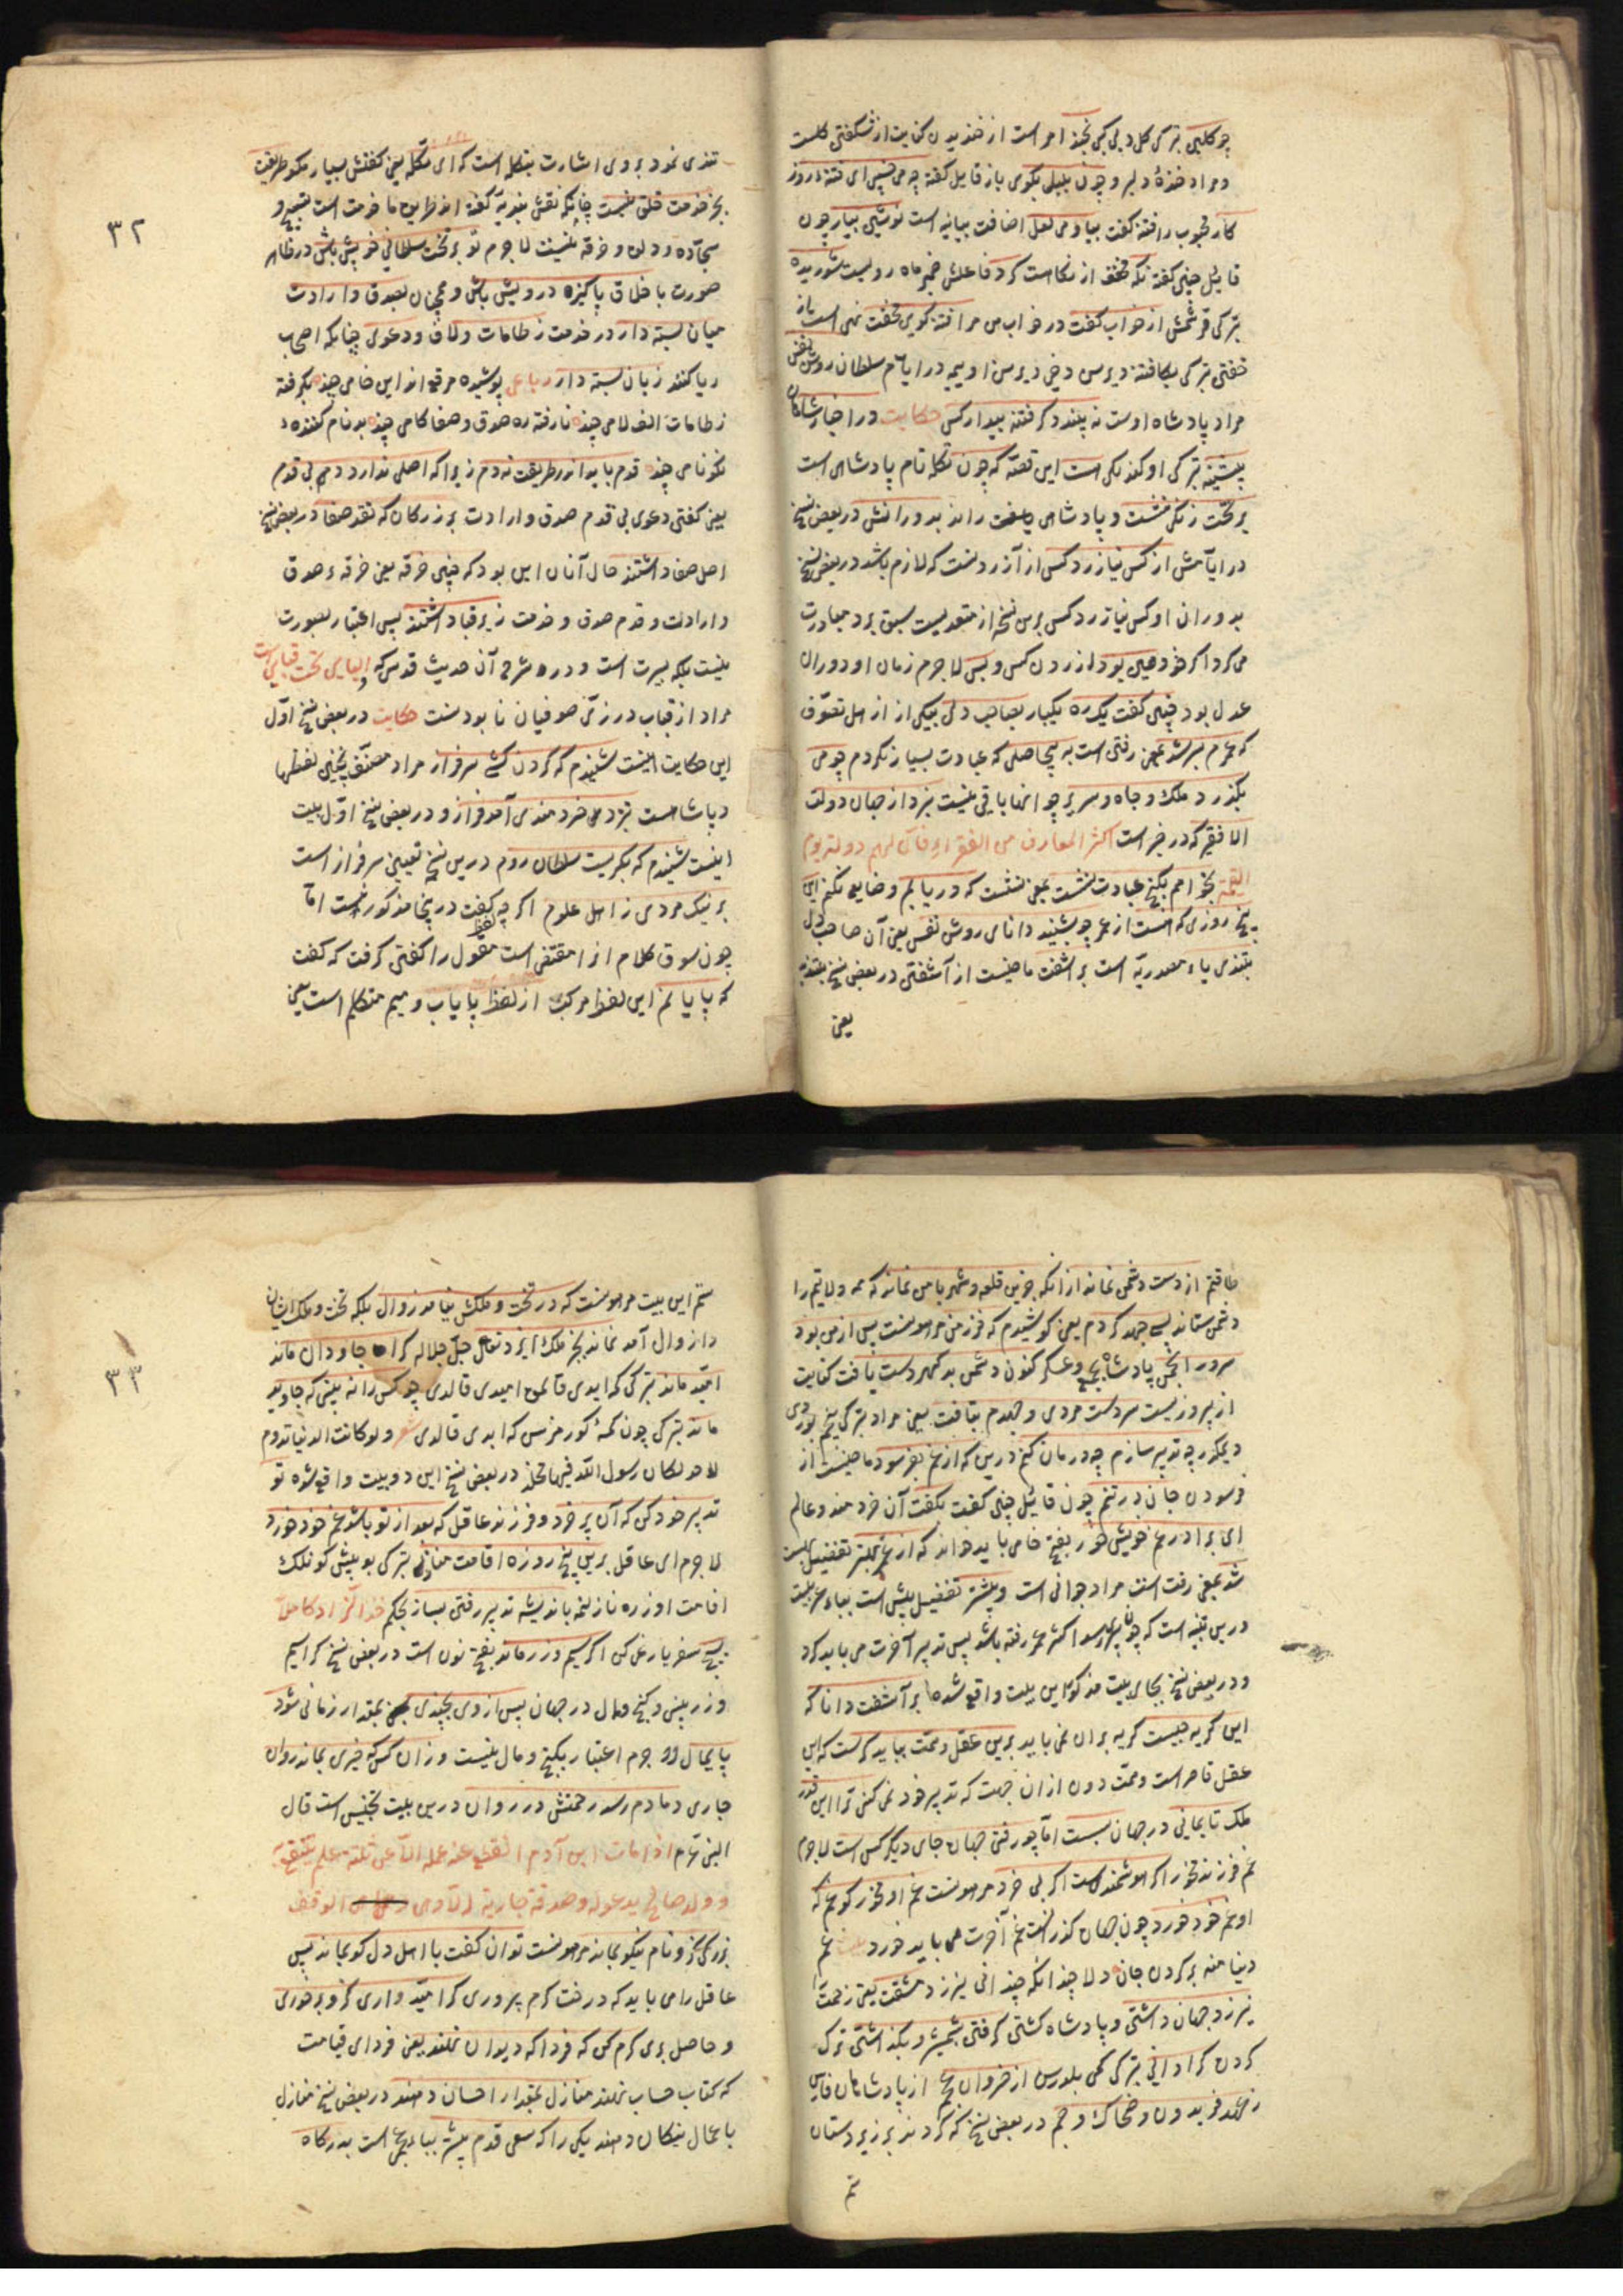 چو کلبن بترکی کل دبی کبی بخند امر است از خندیدن کنایت از شکفتن کلست
و مراد خندهٔ دلبر و چون بلبل بکوی باز قایل کفته چه می خسپی ای فتنه روز
کار محبوب را فتنه کفت بیا و می لعل اضافت بیانیه است نوشین بیار چون
قایل چنین کفته نکه مخفف از نکاه است کرد فاعلش ضمیر ماه رویست شوریده
بترکی از خواب کفت در خواب من مرا فتنه کویی مخفت نهی است باز
خفتن بترکی در ایام سلطان روشن نفس
مراد پادشاه اوست نه پسندد کر فتنه بیدار کس حکایت در اخبار شاهان
پیشینه بترکی اوکندکی است این قصه که چون تکله نام پادشاهی است
بر تخت زنکی نشست و پادشاهی یافت راند بدورانش در بعض نسخ
در ایامش از کس نیازرد کس از آزردنست که لازم باشد در بعض نسخ
بدوران او کس نیازرد کس برین نسخه از متعدیست سبق برد مبادرت
می کرد اکر خود همین بود از زدن کس و بس لاجرم زمان او دوران
عدل بود چنین کفت یک ره یکبار بصاحب دلی بیکی از از اهل تصوف
که عمرم بسر شد بمعنی رفتن است به بیحاصلی که عبادت بسیار نکردم چو می
بکذرد ملک و جاه و سریر چو اینها باقی نیست نبرد از جهان دولت
الا فقیر که در خبر است اکثر المعارف من الفقراء فان لهم دولة یوم
القیمة بخواهم بکنج عبادت نشست بمعنی نشستن که دریابم و ضایع نکنم این
پنج روزی که هست از عمر چو بشنید دانای روشن نفس یعنی آن صاحب دل
بتندی یاء مصدریه است بر اشفت ماضیست از آشفتن در بعض نسخ بتندید
یعنی
٣٢
تندی نمود بروی اشارت بتکله است که ای تکله یعنی کفتش بسیار نکو طریقت
بجز خدمت خلق نیست چنانکه نقش بندیه کفته اند طریق ما خدمت است تسبیح و
سجاده و دلق و خرقه نیست لاجرم تو بر تخت سلطانی خویش باش در ظاهر
صورت باخلاق پاکیزه درویش باش و همچنان بصدق و ارادت
میان بسته دار در خدمت ز طامات و لاف و دعوی چنانکه اصحاب
ریا کنند زبان بسته دار رباعی پوشیده مرقع اند این خامی چند بکرفته
ز طامات الف لامی چند نارفته ره صدق و صفا کامی چند بدنام کننده
نکو نامی چند قدم باید اندر طریقت نه دم زیرا که اصلی ندارد دم بی قدم
یعنی کفتن دعوی بی قدم صدق و ارادت بزرکان که نقد صفا در بعض نسخ
اصل صفا داشتند حال آنان این بود که چنین خرقه یعنی خرقهٔ صدق
و ارادت و قدم صدق و خدمت زیر قبا داشتند پس اعتبار بصورت
نیست بلکه بسیرت است و در شرح آن حدیث قدس که اولیایی تحت قبابی است
مراد از قباب در زی صوفیان نا بودنست حکایت در بعض نسخ اول
این حکایت اینست شنیدم که کردن کشی سرفراز مراد مصنف بچنین لفظها
پاشاهست بنزد خردمندی آمد فراز و در بعض نسخ اول بیت
اینست شنیدم که بکریست سلطان روم درین نسخ تعیین سرفراز است
بر نیک مردی ز اهل علوم اکر چه لفظ کفت درینجا مذکور نیست اما
چون سوق کلام انرا مقتضی است مقول را کفتن کرفت که کفت
که پایانم این لفظ مرکب از لفظ پایاب و میم متکلم است یعنی
طاقتم از دست دشمن نماند از انکه جز این قلعه و شهر با من نماند که همه ولایتم را
دشمن ستاند بسی جهد کردم یعنی کوشیدم که فرزند من مرهونست پس از من بود
سرور انجمن پادشاه جمع و عسکر کنون دشمن بدکهر دست یافت کنایت
از پیروزیست سردست مردی و جهدم بتافت یعنی مراد بترکی
دیمکدر چه تدبیر سازم چه درمان کنم درین که از غم بفرسود ماضیست از
فرسودن جان در تنم چون قایل چنین کفت بکفت آن خردمند و عالم
ای برادر غم خویش خور بفتح خامی باید خواند که از عمر بهتر تفضیل است
شد بمعنی رفت است مراد جوانی است و بیشتر تفضیل بیش است بباء عربیت
درین تنبیه است که چون پیری رسد اکثر عمر رفته باشد پس تدبیر آخرت می باید کرد
و در بعض نسخ بجای بیت مذکور این بیت واقع شده بر آشفت دانا که
این کریه چیست کریه بران نمی باید برین عقل و همت بباید کریست که این
عقل قاصر است و همت دون از ان جهت که تدبیر خود نمی کنی ترا این قدر
ملک تا بمانی در جهان بسست اما چو رفتی جهان جای دیکر کس است لاجرم
غم فرزند مخور اکر هوشمند است اکر بی خرد مرهونست غم او مخور کو غم که
او غم خود خورد چون جهان کذرانست غم آخرت می باید خورد بیت غم
دنیا منه بر کردن جان دلا چندانکه چندانی نیرزد مشقت یعنی زحمت
نیرزد جهان داشتن و پادشاه کشتن کرفتن بشمشیر و بکذاشتن ترک
کردن کرا دانی بترکی کمی بلورسن از خسروان عجم از پادشاهان فارس
ز عهد فریدون و ضحاک و جم در بعض نسخ که کردند بر زیر دستان
ستم
٣٣
ستم این بیت مرهونست که در تخت و ملکش نیامد زوال بلکه تخت و ملک ایشان
را زوال آمد نماند بجز ملک ایزد تعالی جل جلاله کرا جاودان ماند
امید ماند بترکی که ایدی قالمق امیدی قالدی چو کس را نه بینی که جاوید
ماند بترکی چون کمه کورمزسن که ابدی قالدی شعر ولو کانت الدنیا تدوم
لاحد لکان رسول الله فیها مخلد در بعض نسخ این دو بیت واقع شده تو
تدبیر خود کن که آن پر خرد و فرزند عاقل که بعد از تو باشد غم خود خورد
لاجرم ای عاقل برین پنج روزه اقامت مناز بترکی بو بیش کونلک
اقامت اوزره نازلنمه باندیشه تدبیر رفتن بساز بحکم خذ الزاد کاملا
سفر یارغی کن اکر سیم و زر ماند بفتح نون است در بعض نسخ کرا سیم
و زر بینی و کنج و مال در جهان پس از وی بچندی بمقدار زمانی شود
پایمال لاجرم اعتبار بکنج و مال نیست وز ان کس که خیری بماند روان
جاری دمادم رسد رحمتش در روان درین بیت تجنیس است قال
النبی عم اذا مات ابن آدم انقطع عنه عمله الا عن ثلثة علم ینتفع به
و ولد صالح یدعو له و صدقة جاریة الوقف
بزرکی کزو نام نیکو بماند مرهونست توان کفت با اهل دل کو بماند پس
عاقل را می باید که درخت کرم پروری کرامید واری کزو بر خوری
و حاصل بری کرم کن که فردا که دیوان نهند یعنی فردای قیامت
که کتاب حساب نهند منازل بمقدار احسان دهند در بعض نسخ منازل
باعمال نیکان دهند یکی را که سعی قدم بیشتر بباء است بدرکاه